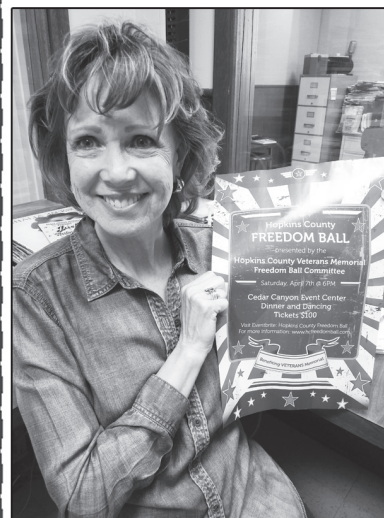 Hopkins County
FREEDOM BALL
presented by the
Hopkins County Veterans Memorial
Freedom Ball Committee
Saturday, April 7th @ 6PM
Cedar Canyon Event Center
Dinner and Dancing
Tickets $100
Visit Eventbrite: Hopkins County Freedom Ball
For more information: www.hcfreedomball.com
Benefiting VETERANS Memorial